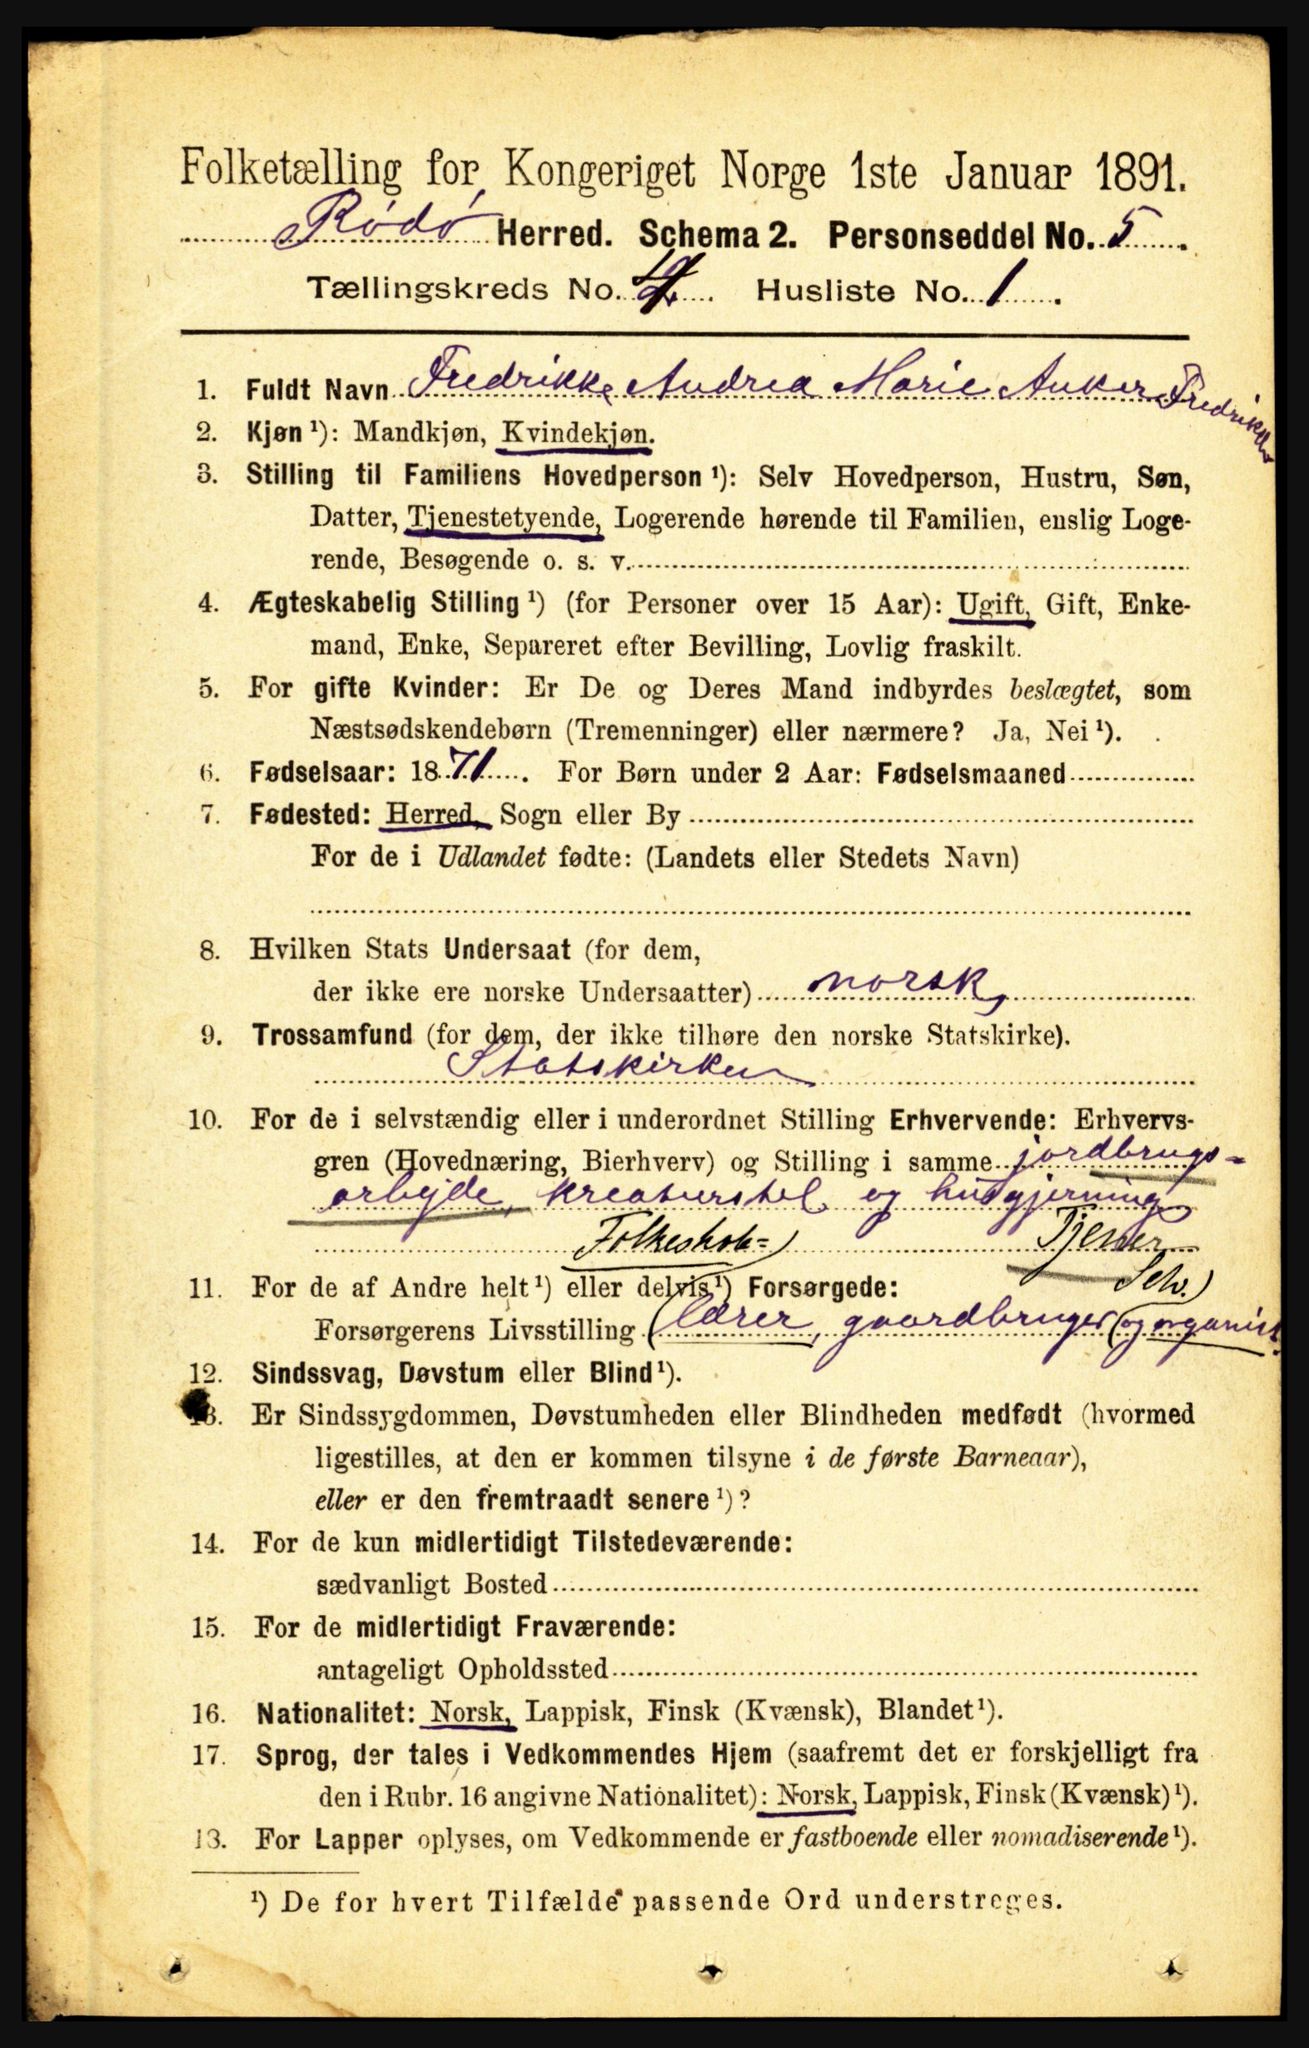 Folketælling for Kongeriget Norge 1ste Januar 1891.
Rødø Herred. Schema 2. Personseddel No. 5.
Tællingskreds No. Husliste No. 1.
1. Fuldt Navn Fredrikke Andrea Marie Anker Fredriks
2. Kjøn ¹): Mandkjøn, Kvindekjøn.
3. Stilling til Familiens Hovedperson ¹): Selv Hovedperson, Hustru, Søn,
Datter, Tjenestetyende, Logerende hørende til Familien, enslig Loge-
rende, Besøgende o. s. v.
4. Ægteskabelig Stilling ¹) (for Personer over 15 Aar): Ugift, Gift, Enke-
mand, Enke, Separeret efter Bevilling, Lovlig fraskilt.
5. For gifte Kvinder: Er De og Deres Mand indbyrdes beslægtet, som
Næstsødskendebørn (Tremenninger) eller nærmere? Ja, Nei ¹).
6. Fødselsaar: 1871. For Børn under 2 Aar: Fødselsmaaned
7. Fødested: Herred, Sogn eller By
For de i Udlandet fødte: (Landets eller Stedets Navn)
8. Hvilken Stats Undersaat (for dem,
der ikke ere norske Undersaatter) norsk,
9. Trossamfund (for dem, der ikke tilhøre den norske Statskirke).
Statskirken
10. For de i selvstændig eller i underordnet Stilling Erhvervende: Erhvervs-
gren (Hovednæring, Bierhverv) og Stilling i samme jordbrugs=
arbejde, kreaturstel og husgjerning
Folkeskole= Tjener
11. For de af Andre helt ¹) eller delvis ¹) Forsørgede: Selv.)
Forsørgerens Livsstilling (lærer, gaardbruger (og organist.
12. Sindssvag, Døvstum eller Blind ¹).
13. Er Sindssygdommen, Døvstumheden eller Blindheden medfødt (hvormed
ligestilles, at den er kommen tilsyne i de første Barneaar),
eller er den fremtraadt senere ¹)?
14. For de kun midlertidigt Tilstedeværende:
sædvanligt Bosted
15. For de midlertidigt Fraværende:
antageligt Opholdssted
16. Nationalitet: Norsk, Lappisk, Finsk (Kvænsk), Blandet ¹).
17. Sprog, der tales i Vedkommendes Hjem (saafremt det er forskjelligt fra
den i Rubr. 16 angivne Nationalitet): Norsk, Lappisk, Finsk (Kvænsk) ¹).
18. For Lapper oplyses, om Vedkommende er fastboende eller nomadiserende ¹).
¹) De for hvert Tilfælde passende Ord understreges.